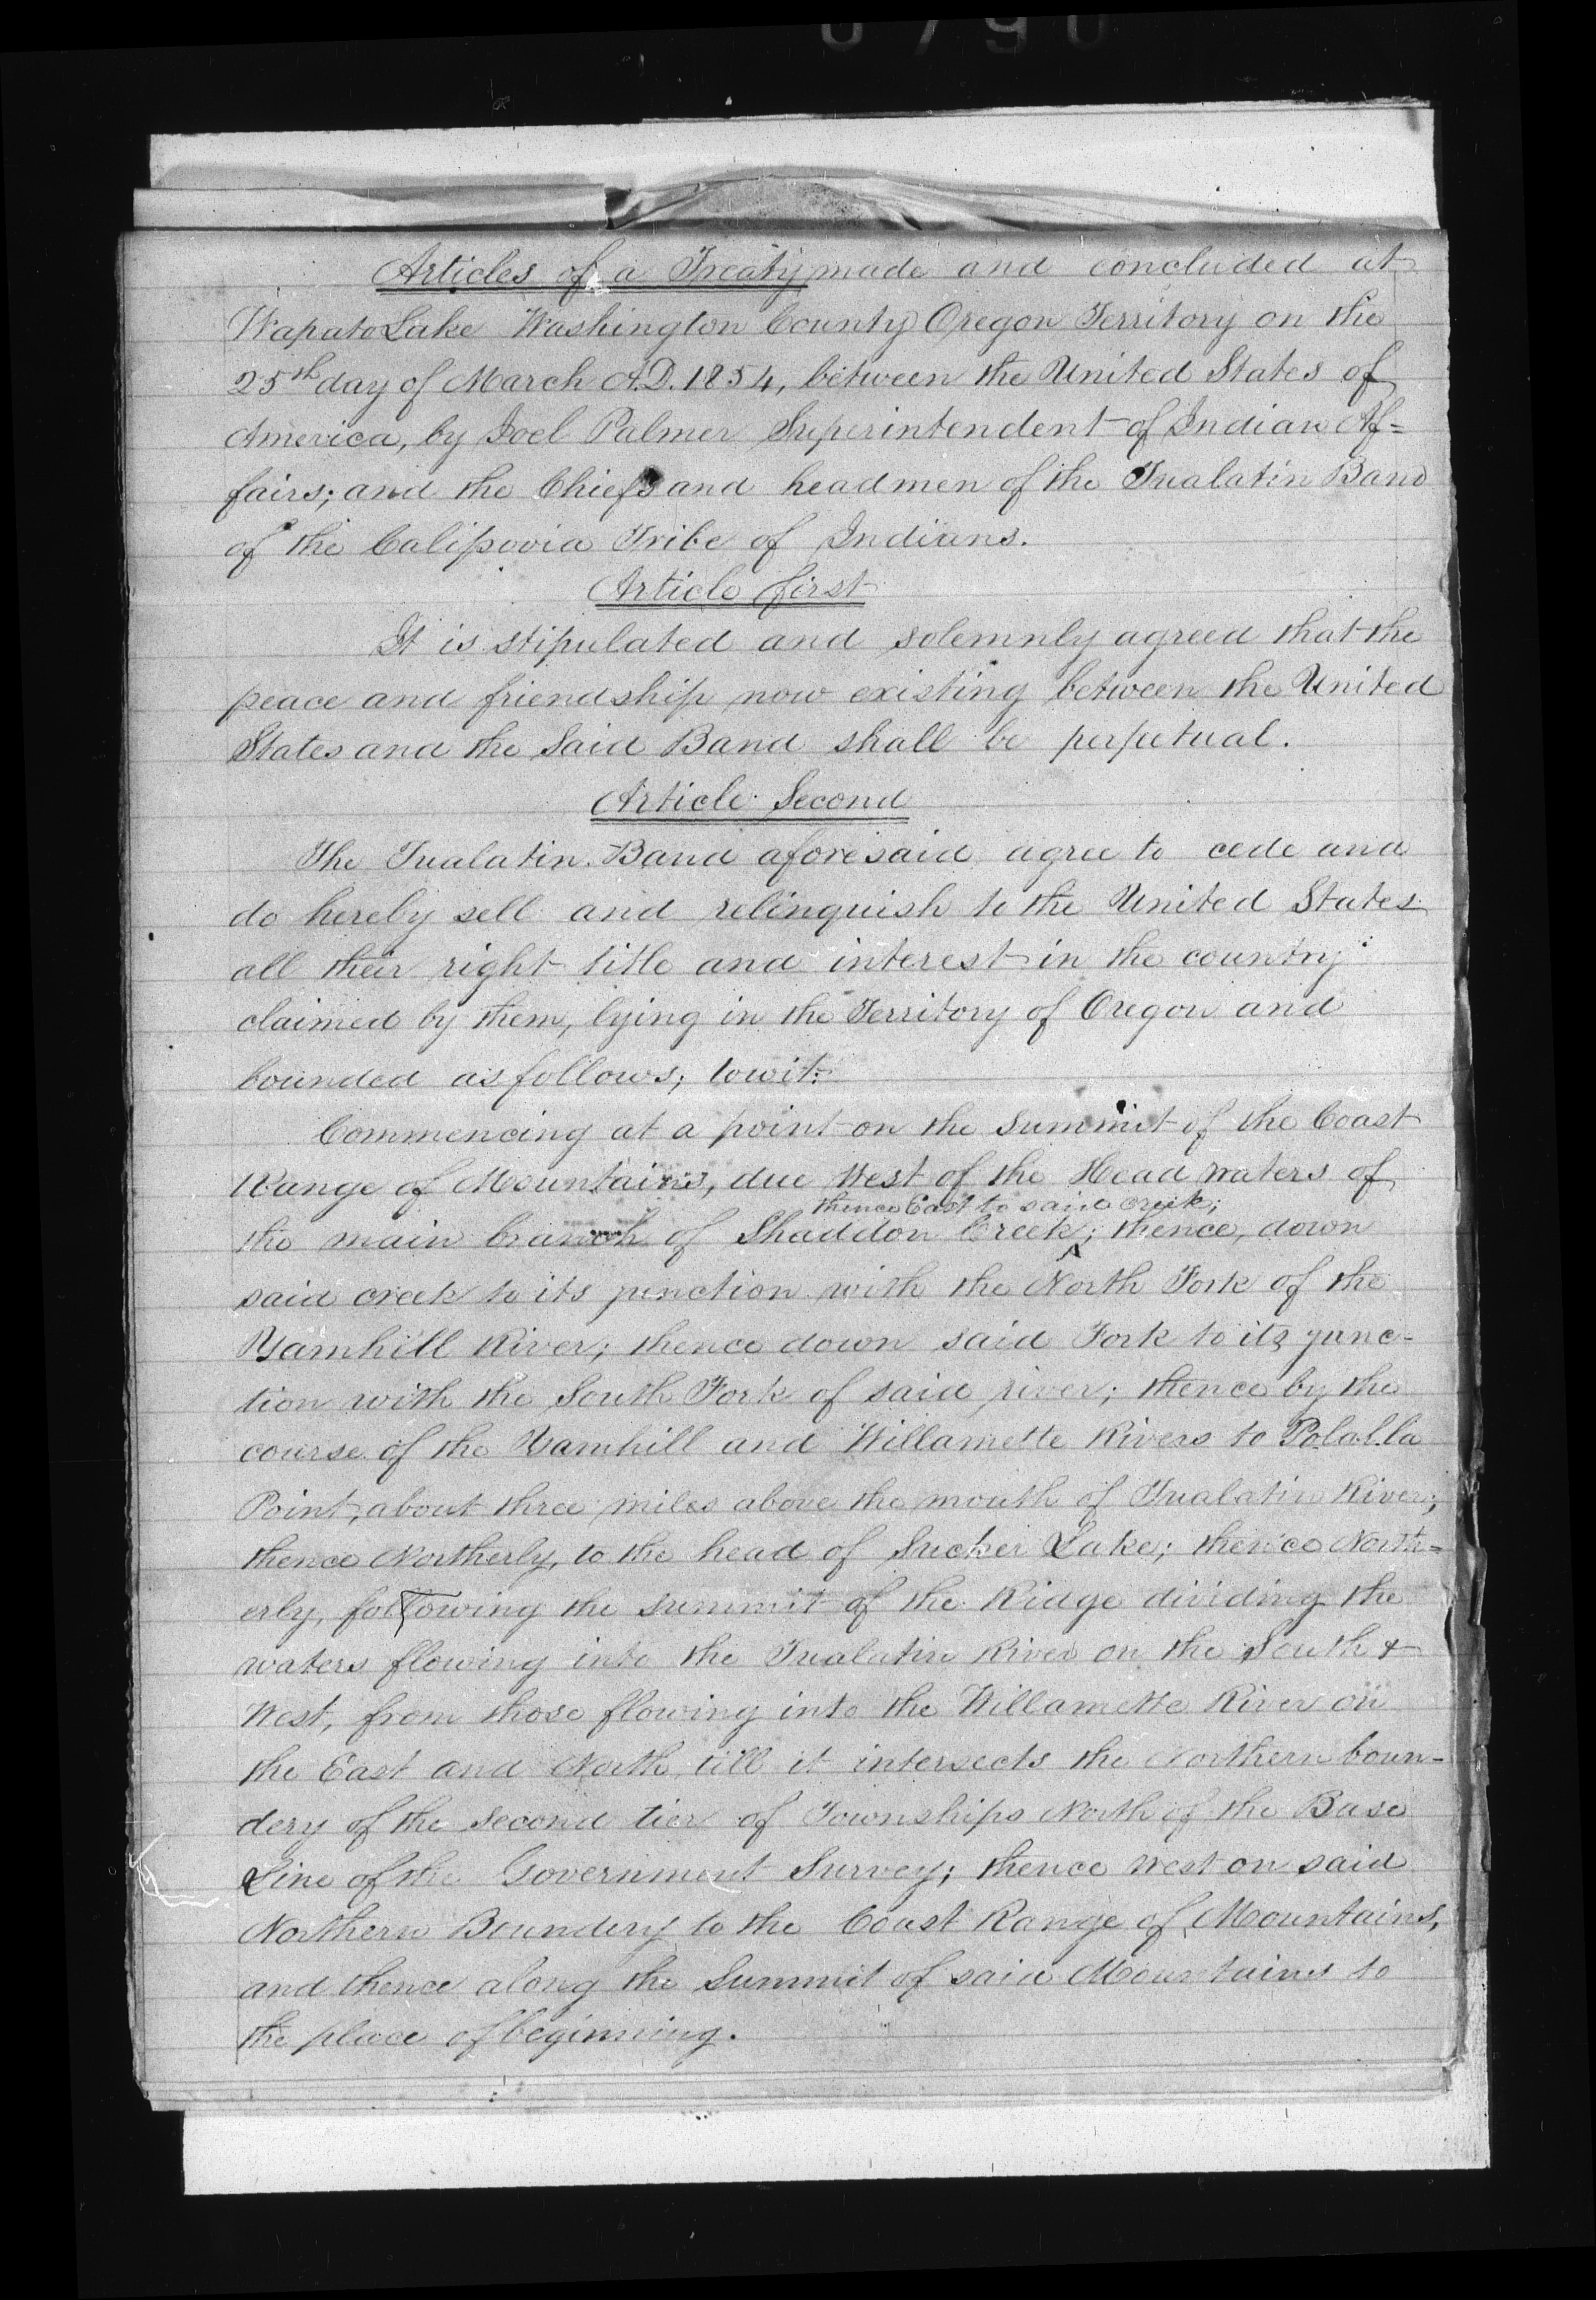 Articles of a Treaty made and concluded at
Wapato Lake Washington County Oregon Territory on the
25th day of March A.D. 1854, between the United States of
America, by Joel Palmer Superintendent of Indian Af=
fairs; and the Chiefs and headmen of the Tualatin Band
of the Calipooia Tribe of Indians.
Article first
It is stipulated and solemnly agreed that the
peace and friendship now existing between the United
States and the said Band shall be perpetual.
Article Second
The Tualatin Band aforesaid agree to cede and
do hereby sell and relinquish to the United States
all their right title and interest in the country
claimed by them, lying in the Territory of Oregon and
bounded as follows; towit:
Commencing at a point on the summit of the Coast
Range of Mountains, due West of the Head waters of
thence East to said creek;
the main branch of Shaddon Creek; thence, down
said creek to its junction with the North Fork of the
Yamhill River; thence down said Fork to its junc-
tion with the South Fork of said river; thence by the
course of the Yamhill and Willamette Rivers to Polalla
Point, about three miles above the mouth of Tualatin River;
thence Northerly, to the head of Sucker Lake; thence North=
erly, following the summit of the Ridge dividing the
waters flowing into the Tualatin River on the South &
West, from those flowing into the Willamette River on
the East and North, till it intersects the Northern boun-
dery of the second tier of Townships North of the Base
Line of the Government Survey; thence west on said
Northern Boundery to the Coast Range of Mountains,
and thence along the Summit of said Mountains to
the place of beginning.